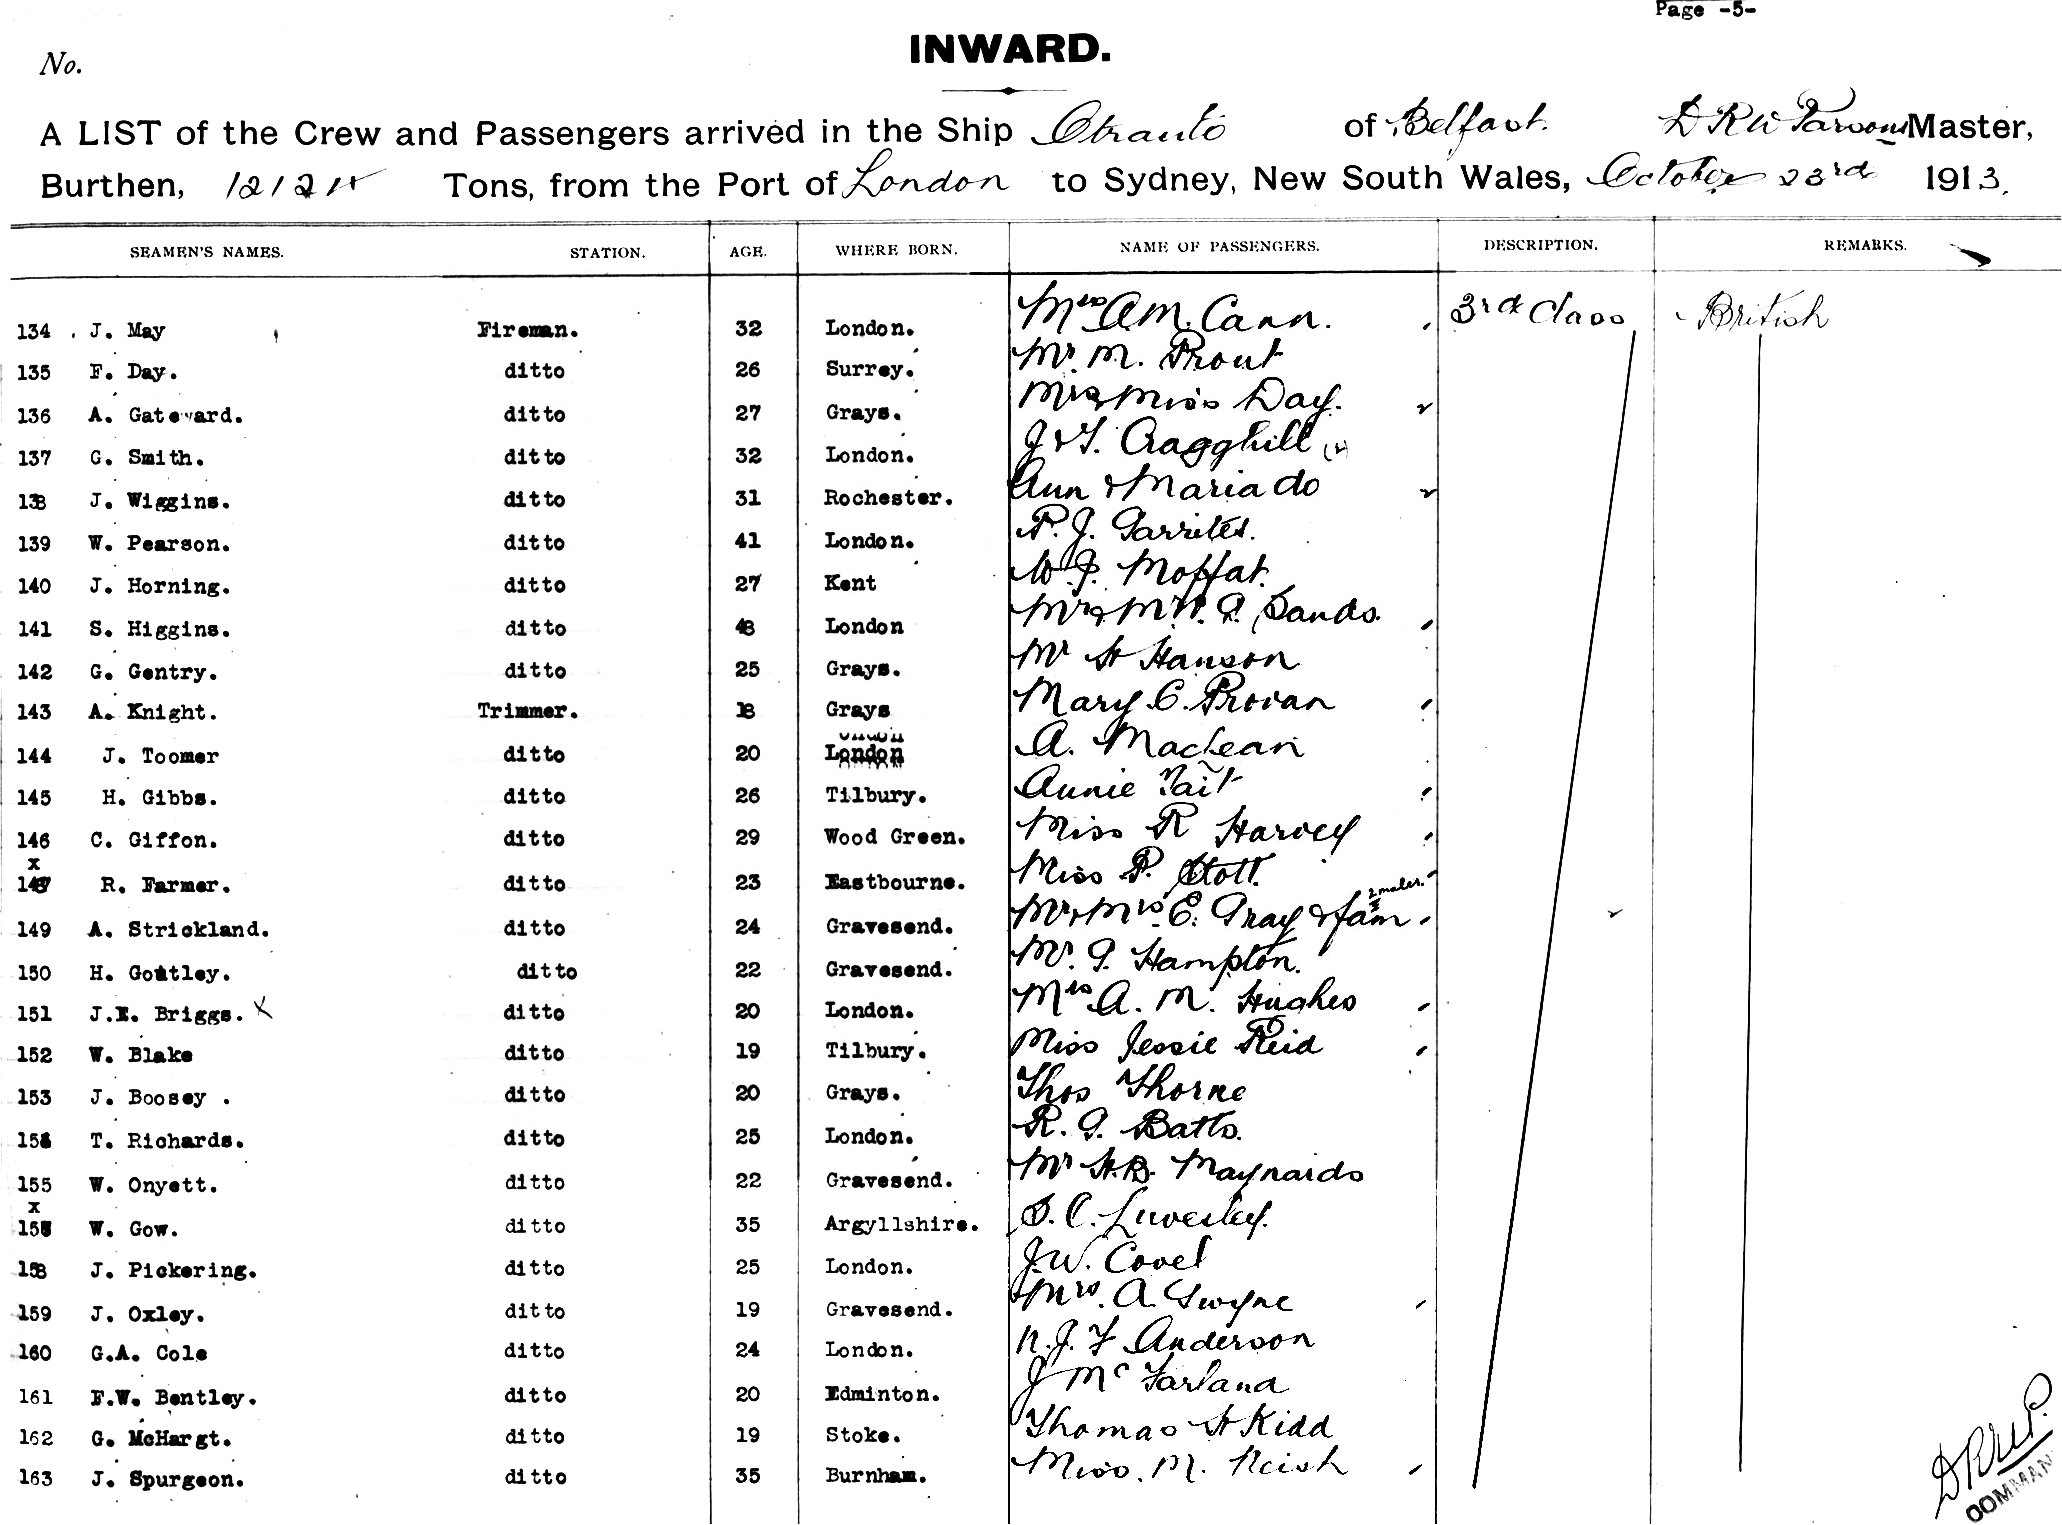 Page -5-
No.
INWARD.
A LIST of the Crew and Passengers arrived in the Ship Otranto of Belfast. D R W Parsons Master,
Burthen, 12124 Tons, from the Port of London to Sydney, New South Wales, October 23rd 1913.
SEAMEN'S NAMES. STATION. AGE. WHERE BORN. NAME OF PASSENGERS. DESCRIPTION. REMARKS.
134 J. May Fireman. 32 London. Mrs A M. Cann. 3rd Class British
135 F. Day. ditto 26 Surrey. Mr. M. Prout
136 A. Gateward. ditto 27 Grays. Mrs & Miss Day.
137 G. Smith. ditto 32 London. J & T. Cragghill
138 J. Wiggins. ditto 31 Rochester. Ann & Maria do
139 W. Pearson. ditto 41 London. P. J. Garrites.
140 J. Horning. ditto 27 Kent W. J. Moffat.
141 S. Higgins. ditto 48 London Sands.
142 G. Gentry. ditto 25 Grays. Mr H Hanson
143 A. Knight. Trimmer. 18 Grays Mary C. Provan
144 J. Toomer ditto 20 London A. MacLean
145 H. Gibbs. ditto 26 Tilbury. Annie Tait
146 C. Giffon. ditto 29 Wood Green. Miss R Harvey
x
R. Farmer. ditto 23 Eastbourne. Miss P. Stott.
2 males.
149 A. Strickland. ditto 24 Gravesend. Mr & Mrs. E. Gray & fam
150 H. Goatley. ditto 22 Gravesend. Mr. G. Hampton.
151 J.E. Briggs. X ditto 20 London. Mrs A. M. Hughes
152 W. Blake ditto 19 Tilbury. Miss Jessie Reid
153 J. Boosey . ditto 20 Grays. Thos Thorne
T. Richards. ditto 25 London. R. G. Batts.
155 W. Onyett. ditto 22 Gravesend. Mr H.B. Maynards
x
W. Gow. ditto 35 Argyllshire. S. C. Luvesley.
158 J. Pickering. ditto 25 London. J. W. Covel
159 J. Oxley. ditto 19 Gravesend. Mrs. A Gwyne
160 G.A. Cole ditto 24 London. N. J. F Anderson
161 F.W. Bentley. ditto 20 Edminton. J McFarland
162 G. McHargt. ditto 19 Stoke. Thomas H Kidd
163 J. Spurgeon. ditto 35 Burnham. Miss. M. Neish
DRWP.
COMMAN